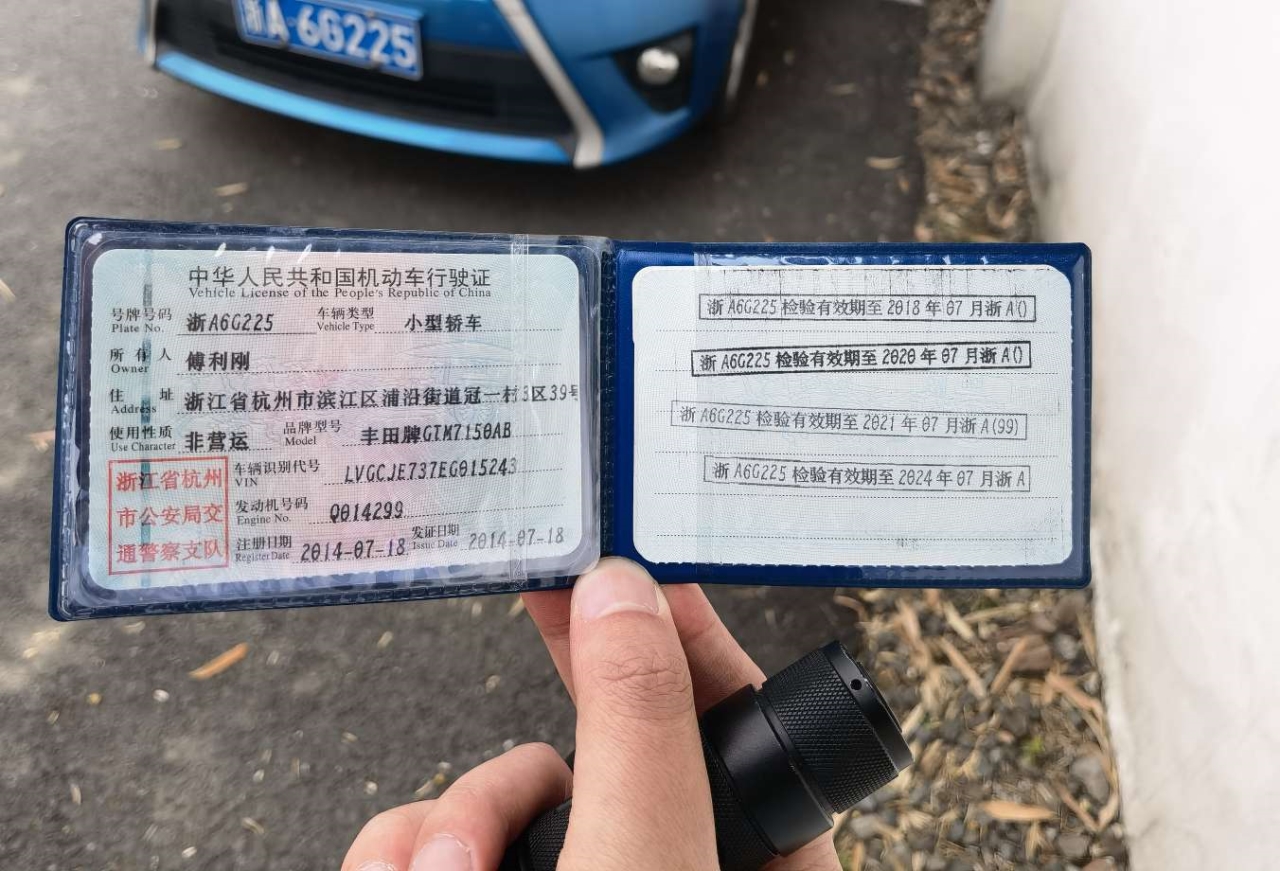 浙A·6G225
中华人民共和国机动车行驶证
Vehicle License of the People's Republic of China
号牌号码 浙A6G225 车辆类型 小型轿车
Plate No. Vehicle Type
所有人 傅利刚
Owner
住址 浙江省杭州市滨江区浦沿街道冠一村3区39号
Address
使用性质 非营运 品牌型号 丰田牌GTM7150AB
Use Character Model
浙江省杭州
市公安局交
通警察支队
车辆识别代号 LVGCJE737EG015243
VIN
发动机号码 Q014299
Engine No.
注册日期 2014-07-18 发证日期 2014-07-18
Register Date Issue Date
浙A6G225检验有效期至2018年07月浙A()
浙A6G225检验有效期至2020年07月浙A()
浙A6G225检验有效期至2021年07月浙A(99)
浙A6G225检验有效期至2024年07月浙A